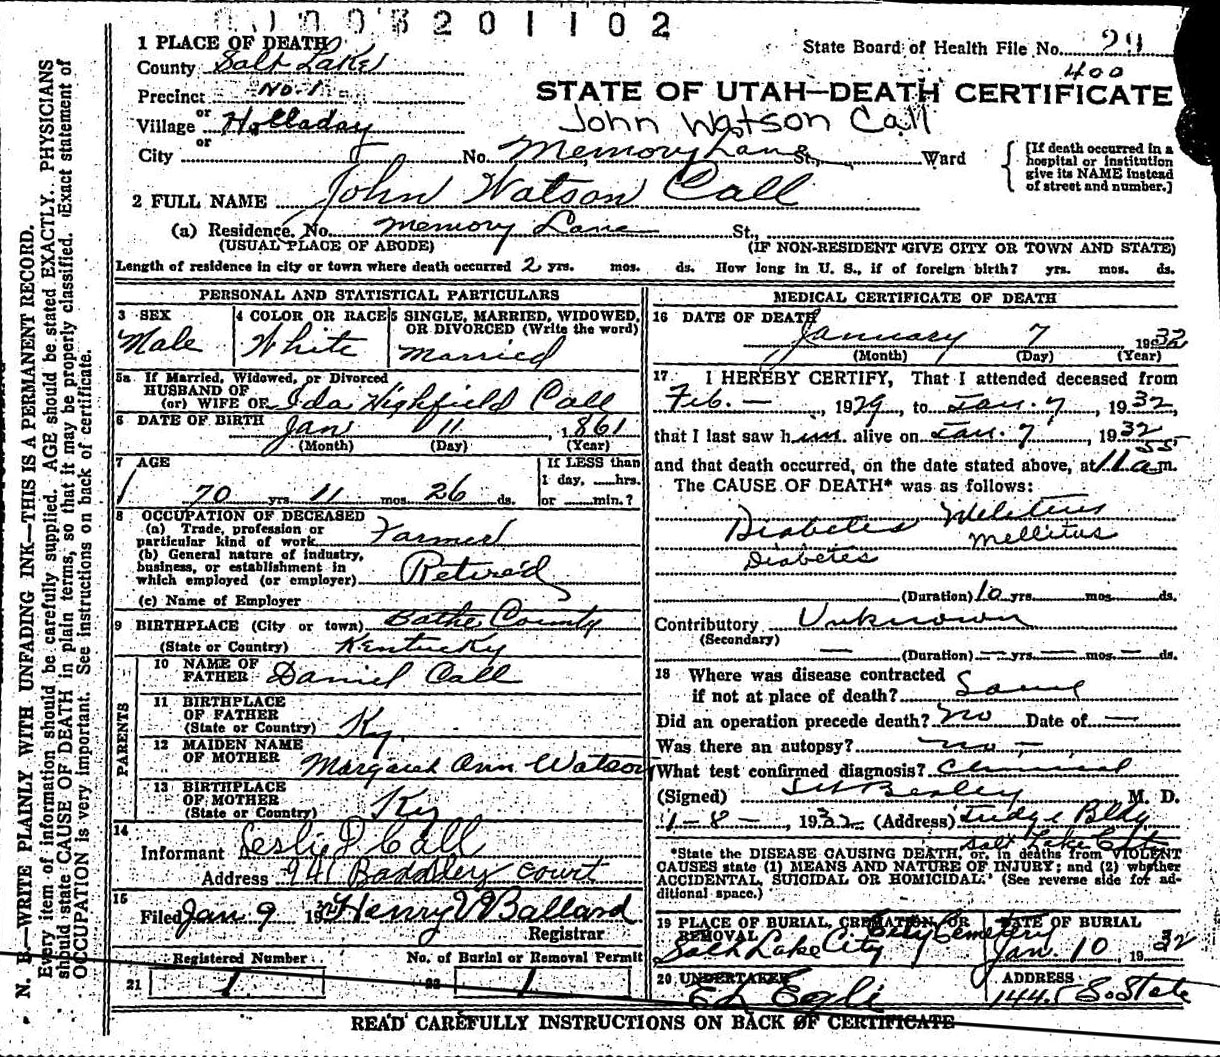 201102
1 PLACE OF DEATH
State Board of Health File No. 29
County Salt Lake
400
Precinct No. 1
STATE OF UTAH—DEATH CERTIFICATE
or
Village Holladay
John Watson Call
or
City No. Memory Lane St., Ward
[If death occurred in a hospital or institution give its NAME instead of street and number.]
2 FULL NAME John Watson Call
(a) Residence, No. Memory Lane St.,
(USUAL PLACE OF ABODE) (IF NON-RESIDENT GIVE CITY OR TOWN AND STATE)
Length of residence in city or town where death occurred 2 yrs. mos. ds. How long in U. S., if of foreign birth? yrs. mos. ds.
PERSONAL AND STATISTICAL PARTICULARS
3 SEX
Male
4 COLOR OR RACE
White
5 SINGLE, MARRIED, WIDOWED, OR DIVORCED (Write the word)
Married
5a If Married, Widowed, or Divorced
HUSBAND OF
(or) WIFE OF Ida Highfield Call
6 DATE OF BIRTH Jan 11 1861
(Month) (Day) (Year)
7 AGE
70 yrs. 11 mos. 26 ds.
If LESS than
1 day, hrs.
or min.?
8 OCCUPATION OF DECEASED
(a) Trade, profession or
particular kind of work Farmer
(b) General nature of industry,
business, or establishment in
which employed (or employer) Retired
(c) Name of Employer
9 BIRTHPLACE (City or town) Bathe County
(State or Country) Kentucky
PARENTS
10 NAME OF
FATHER Daniel Call
11 BIRTHPLACE
OF FATHER
(State or Country) Ky.
12 MAIDEN NAME
OF MOTHER Margaret Ann Watson
13 BIRTHPLACE
OF MOTHER
(State or Country) Ky
14
Informant Leslie D Call
Address 941 Baddley Court
15
Filed Jan 9 19 Henry V Ballard
Registrar
Registered Number No. of Burial or Removal Permit
21 1 22 1
MEDICAL CERTIFICATE OF DEATH
16 DATE OF DEATH
January 7 1932
(Month) (Day) (Year)
17 I HEREBY CERTIFY, That I attended deceased from
Feb. —, 1929, to Jan. 7, 1932,
that I last saw him alive on Jan. 7, 1932
and that death occurred, on the date stated above, at 11 55 a.m.
The CAUSE OF DEATH* was as follows:
Diabetes Melitus
Mellitus
Diabetes
(Duration) 10 yrs. mos. ds.
Contributory Unknown
(Secondary)
— (Duration) — yrs. — mos. — ds.
18 Where was disease contracted
if not at place of death? Same
Did an operation precede death? no Date of —
Was there an autopsy? no —
What test confirmed diagnosis? Clinical
(Signed) Beasley M. D.
1-8-, 1932 (Address) Judge Bldg
Salt Lake City
*State the DISEASE CAUSING DEATH, or, in deaths from VIOLENT
CAUSES state (1) MEANS AND NATURE OF INJURY; and (2) whether
ACCIDENTAL, SUICIDAL OR HOMICIDAL. (See reverse side for ad-
ditional space.)
19 PLACE OF BURIAL, CREMATION, OR
REMOVAL City Cemetery
Salt Lake City
DATE OF BURIAL
Jan. 10 1932
20 UNDERTAKER
Ed Egli
ADDRESS
1445 So. State
READ CAREFULLY INSTRUCTIONS ON BACK OF CERTIFICATE
N. B.—WRITE PLAINLY WITH UNFADING INK—THIS IS A PERMANENT RECORD.
Every item of information should be carefully supplied. AGE should be stated EXACTLY. PHYSICIANS
should state CAUSE OF DEATH in plain terms, so that it may be properly classified. Exact statement of
OCCUPATION is very important. See instructions on back of certificate.